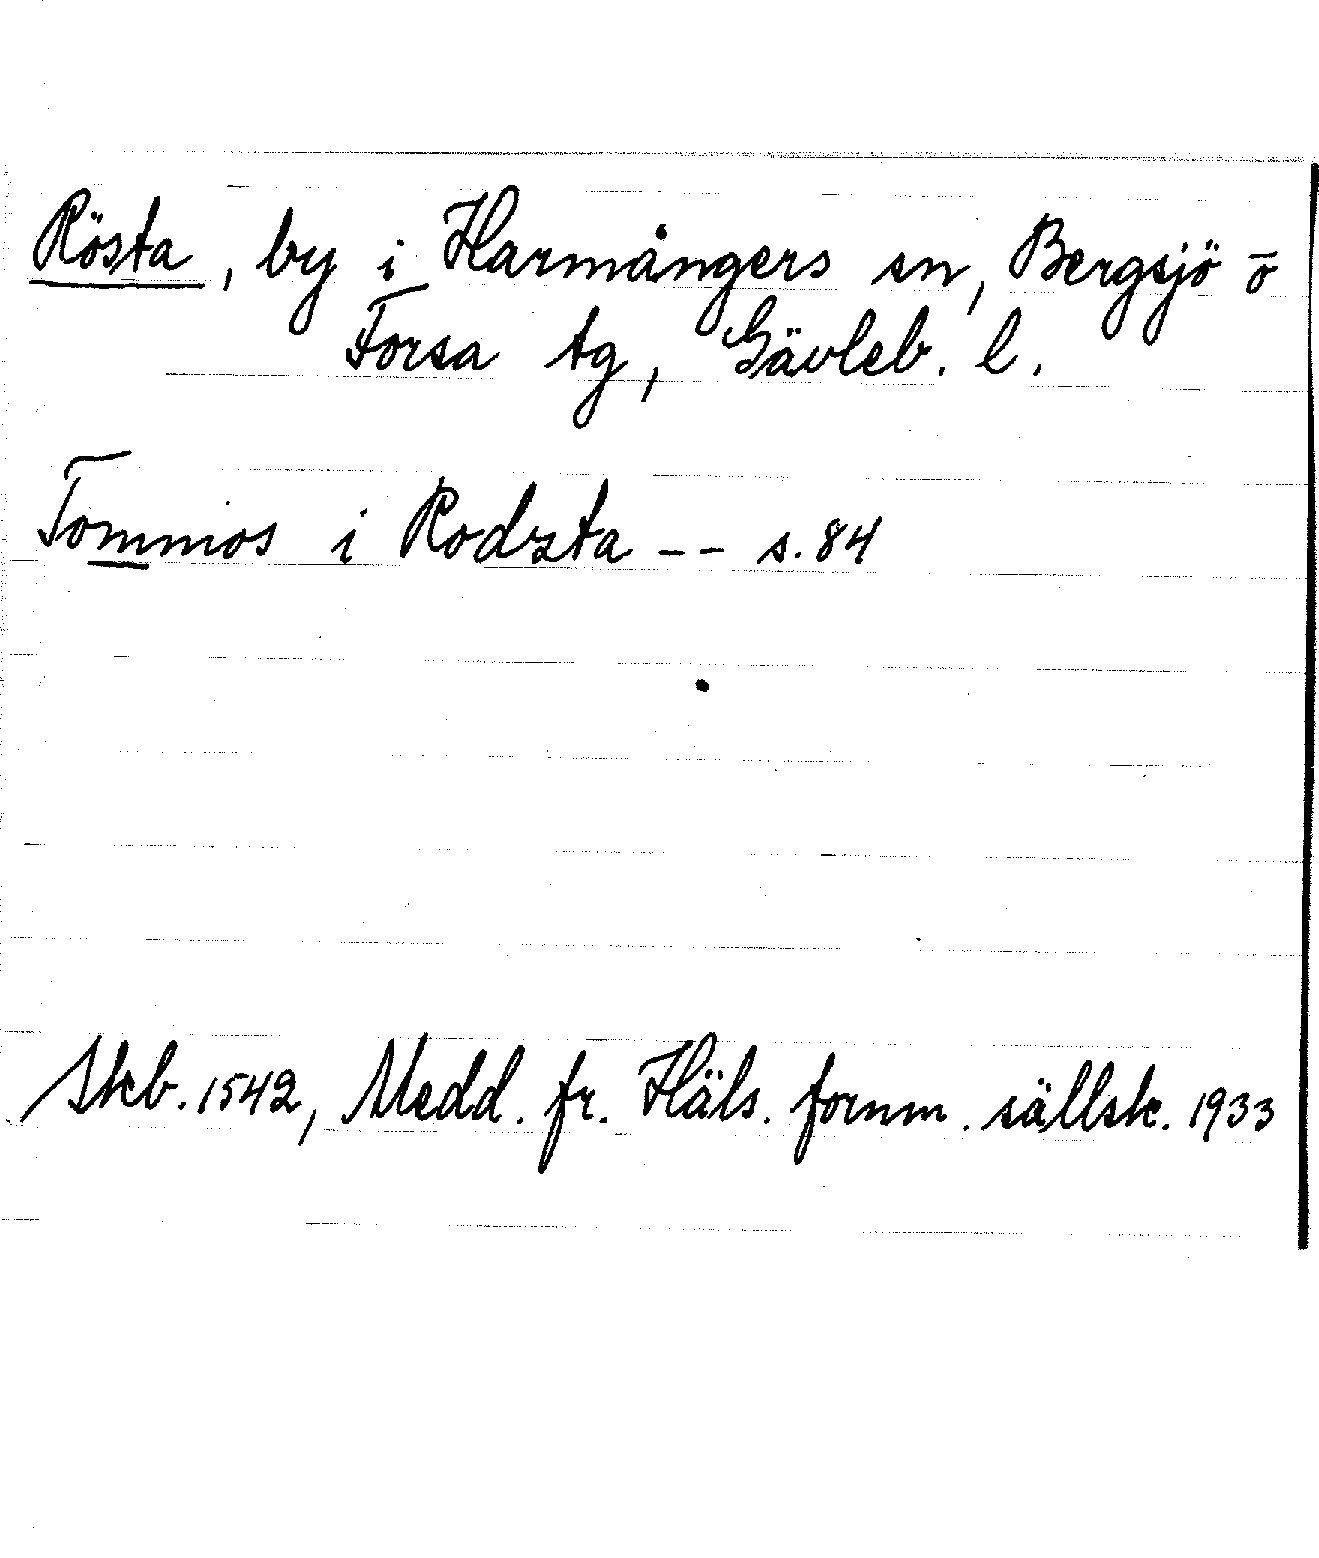 Rösta, by i Harmångers sn, Bergsjö o
Forsa tg, Gävleb. l.
Tommos i Rodzta -- s. 84
Skb. 1542, Medd. fr. Häls. fornm. sällsk. 1933